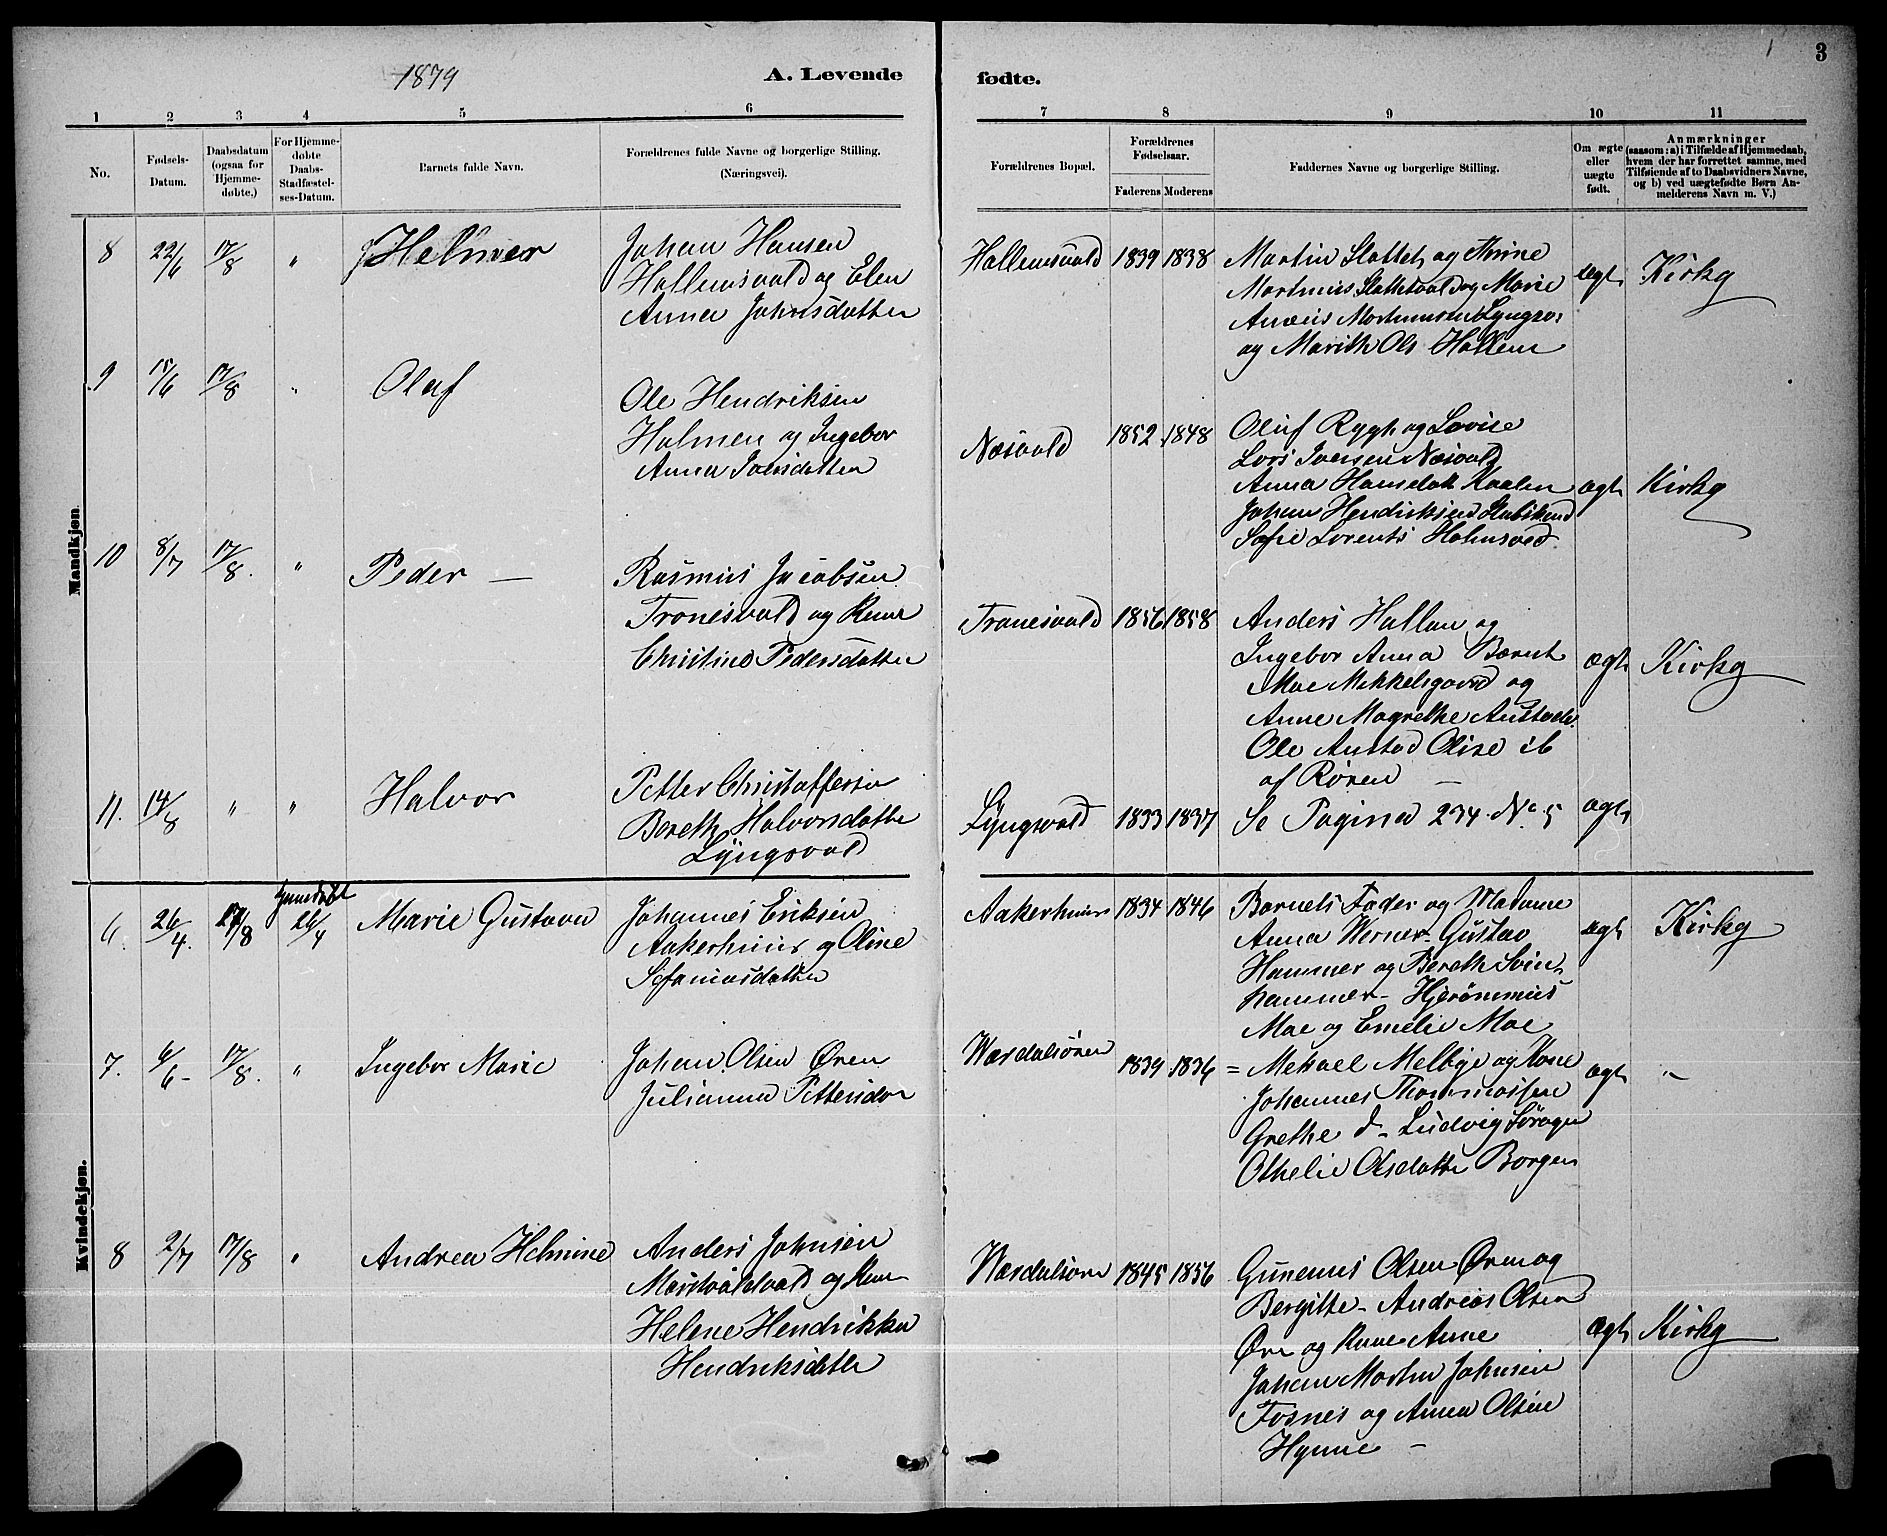 1879
A. Levende fødte.
1
3
1 2 3 4 5 6 7 8 9 10 11
No.
Fødsels-
Datum.
Daabsdatum
(ogsaa for
Hjemme-
døbte.)
For Hjemme-
døbte
Daabs-
Stadfæstel-
ses-Datum.
Barnets fulde Navn.
Forældrenes fulde Navne og borgerlige Stilling.
(Næringsvei).
Forældrenes Bopæl.
Forældrenes
Fødselsaar.
Faderens Moderens
Faddernes Navne og borgerlige Stilling.
Om ægte
eller
uægte
født.
Anmærkninger
(saasom: a) i Tilfælde af Hjemmedaab,
hvem der har forrettet samme, med
Tilføiende af to Daabsvidners Navne,
og b) ved uægtefødte Børn An-
melderens Navn m. V.)
Mandkjøn.
8 22/6 17/8 " Helmer
Johan Hansen
Hallemsvald og Elen
Anna Johnsdatter
Hallemsvald 1839 1838
Martin Slottet og Anne
Martinus Slottetvald og Marie
Anæus Martinusen Lyngsv
og Marith Ols Hallem
ægt Kirkg
9 15/6 17/8 " Olaf
Ole Hendriksen
Holmen og Ingebor
Anna Ionsdatter
Næsvald 1852 1848
Oluf Rygh og Lovise
Lars Iversen Næsvald
Anna Hansdatr Kaalen
Johan Hendriksen
Sofie Lorents Holmsved
ægt Kirkg
10 8/7 17/8. " Peder —
Rasmus Jacobsen
Tronesvald og Kone
Christine Pedersdatter
Tronesvald 1856 1858
Anders Hallan og
Ingebor Anna Bærnt
Moe Mikkelsgaard og
Anne Magrethe Austad
Ole Austad Olise ib
af Røren —
ægt Kirkg
11. 14/8 " " Halvor
Petter Christoffersen
Bereth Halvorsdatter
Lyngsvald
Lyngsvald 1833 1837
Se Pagina 234. No. 5
ægt
Kvindekjøn.
6. 26/4. 17/8 26/4 Marie Gustava
Johannes Eriksen
Aakerhuus og Oline
Sefaniasdatter
Aakerhuus 1834 1846
Barnets Fader og Madame
Anna Werner - Gustav
Hammer og Bereth Svin-
hammer - Hjerømmus
Moe og Emelie Moe
ægt Kirkg
7. 6/6- 17/8. " Ingebor Marie
Johan Olsen Øren
Julianna Pettersdar
Værdalsøren 1839 1836
= Mekael Melbye og Kone
Johannes Thommassen
Grethe d - Ludvig
Othelie Olsdatter Borgen
ægt "
8 2/7 17/8 " Andrea Helmine
Anders Johnsen
og Kone
Helene Hendrikka
Hendriksdatter
Værdalsøren 1845 1856
Gunerius Olsen Øren og
Bergitte - Andreas Olsen
Øre og Kone Anne
Johan Martin Johnsen
Fosnes og Anna Olsen
Hynne —
ægt Kirkg